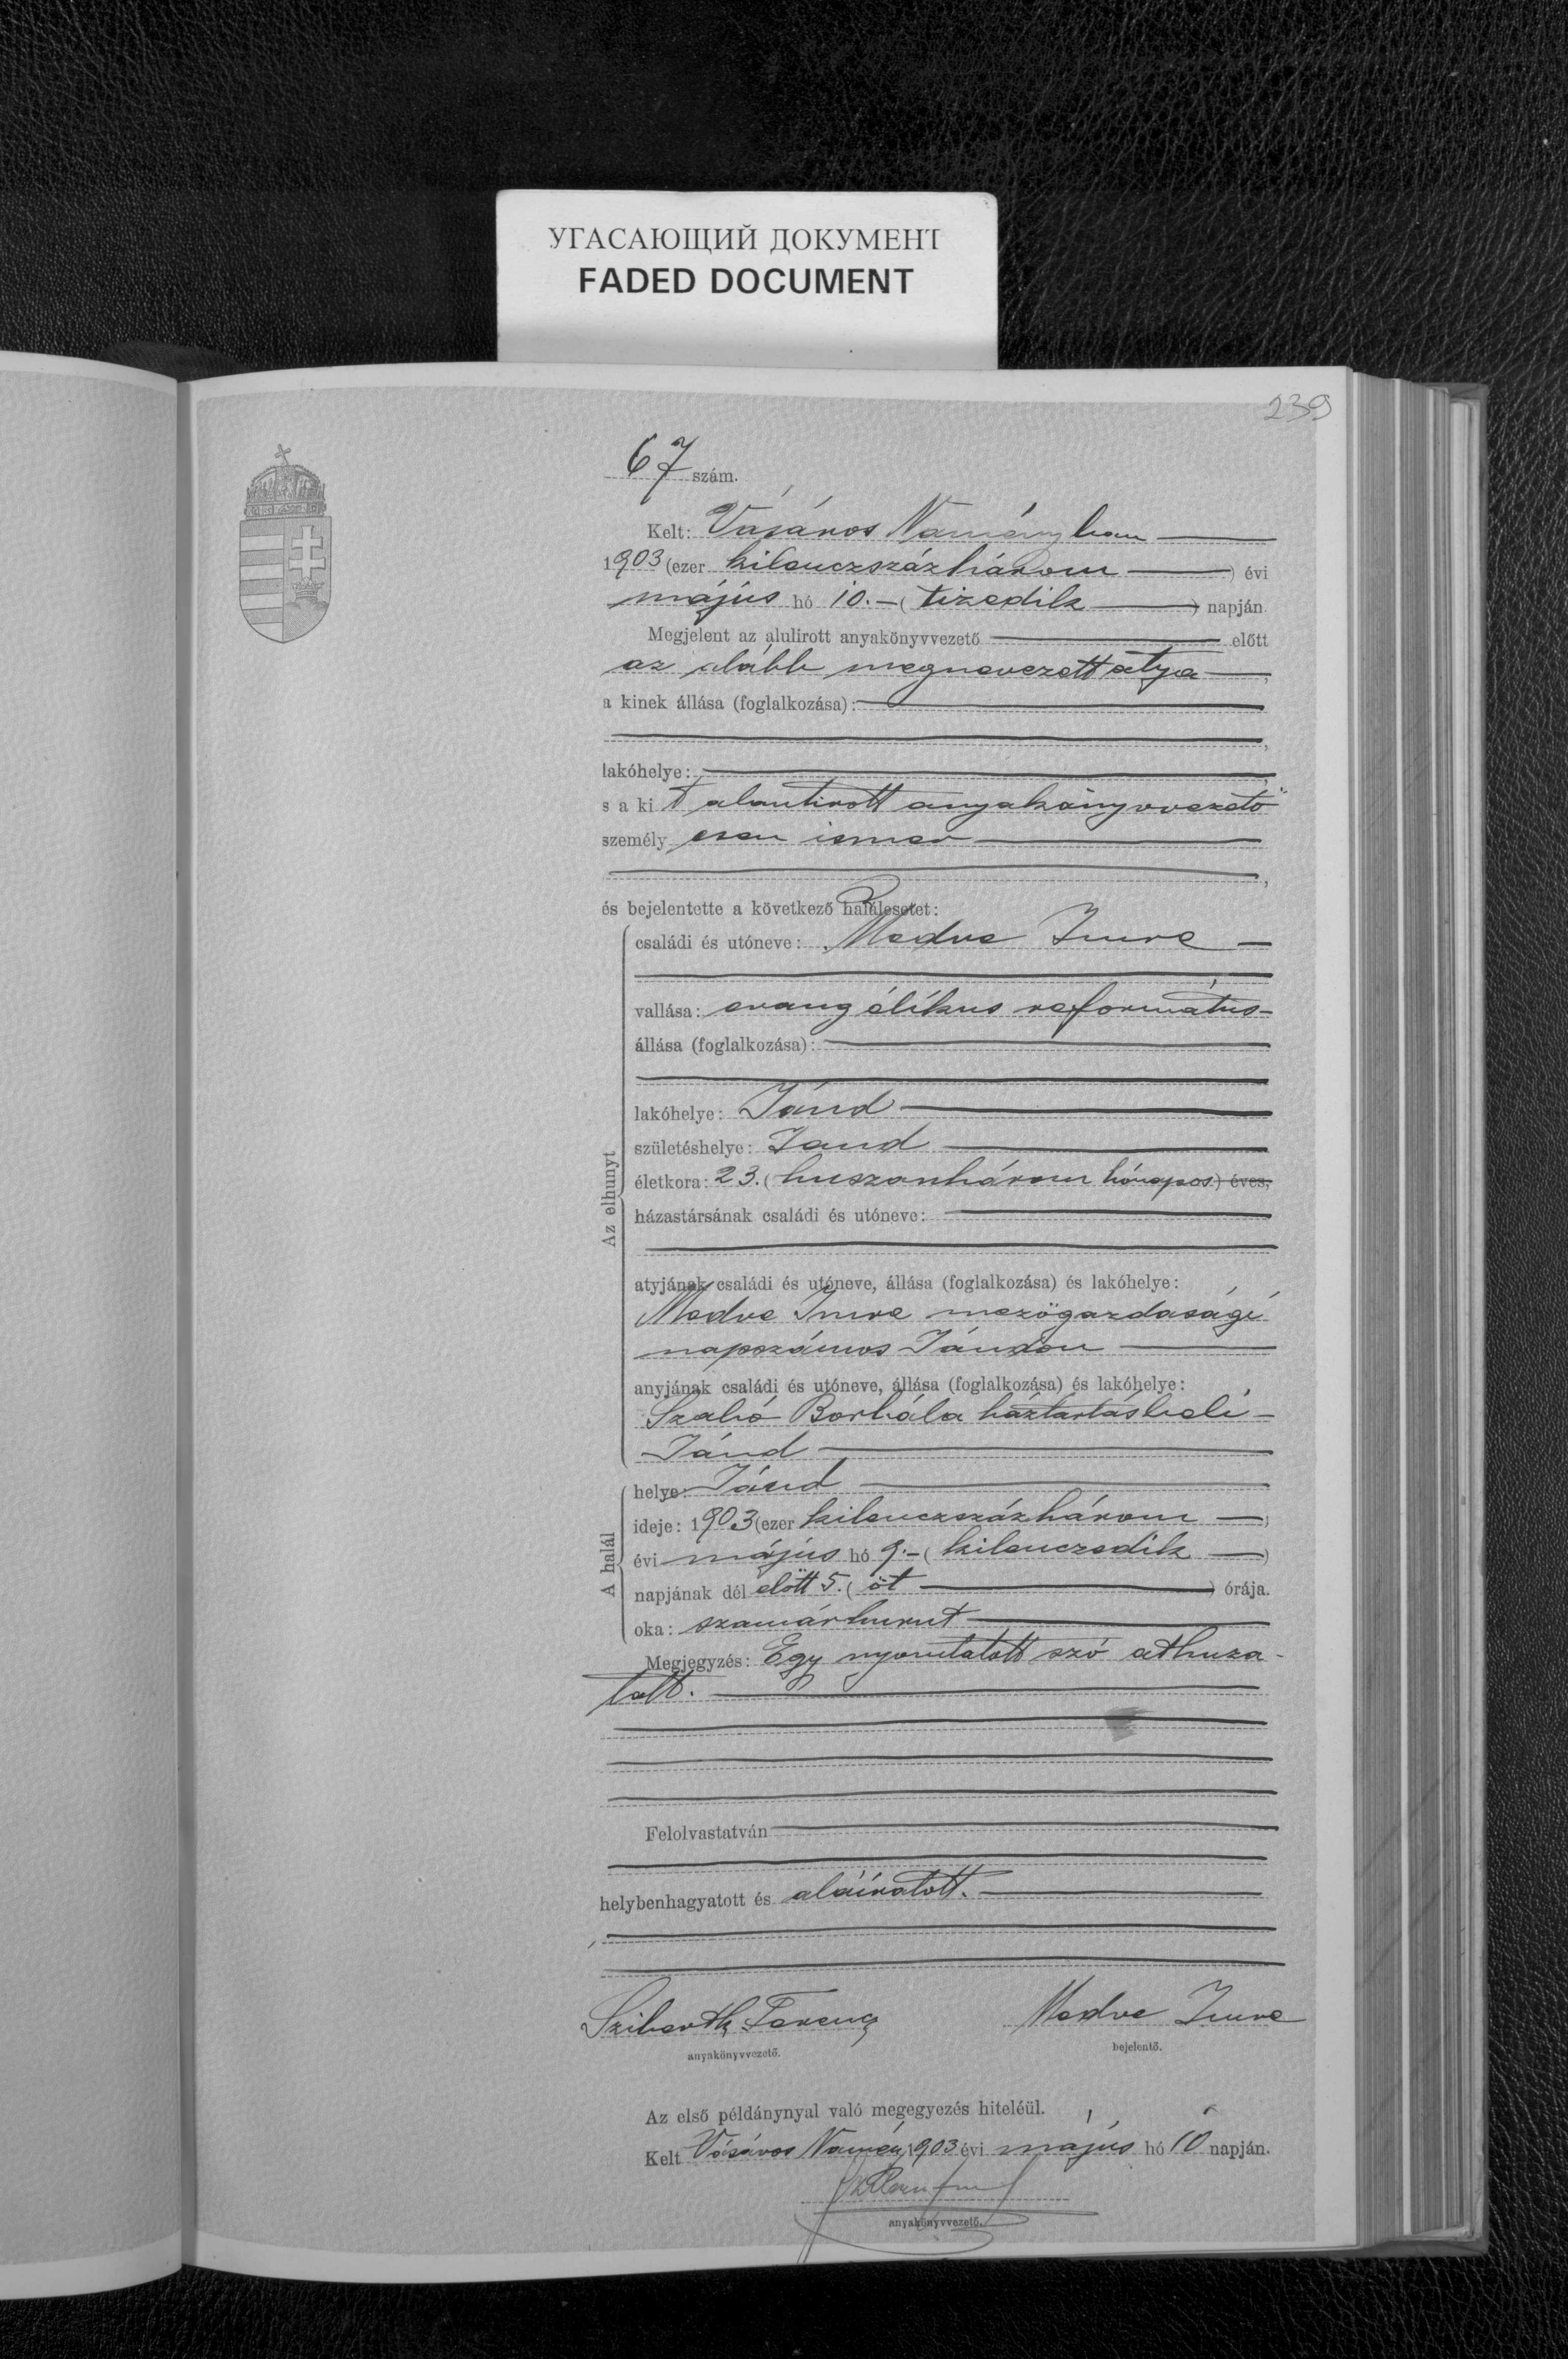 УГАСАЮЩИЙ ДОКУМЕНТ
FADED DOCUMENT
239
67 szám.
Kelt: Vásáros Naményban
1903 (ezer kilenczszázhárom) évi
május hó 10. – (tizedik) napján
Megjelent az alulirott anyakönyvvezető előtt
az alább megnevezett atya,
a kinek állása (foglalkozása):
lakóhelye:
s a kit alantirott anyakönyvvezető
személyesen ismer
és bejelentette a következő halálesetet:
Az elhunyt
családi és utóneve: Medve Imre –
vallása: evangélikus református –
állása (foglalkozása):
lakóhelye: Jánd
születéshelye: Jand
életkora: 23. (huszonhárom hónapos) éves,
házastársának családi és utóneve:
atyjának családi és utóneve, állása (foglalkozása) és lakóhelye:
Medve Imre mezögazdasági
napszámos Jándon
anyjának családi és utóneve, állása (foglalkozása) és lakóhelye:
Szabó Borbála háztartásbeli –
Jánd
A halál
helye: Jánd
ideje: 1903 (ezer kilenczszázhárom –)
évi május hó 9. – (kilenczedik –)
napjának dél elött 5. (öt) órája.
oka: szamárhurut
Megjegyzés: Egy nyomtatott szó athuza-
tott.
Felolvastatván
helybenhagyatott és aláiratott.
Sziberth Ferencz Medve Imre
anyakönyvvezető. bejelentő.
Az első példánynyal való megegyezés hiteléül.
Kelt Vásáros Namény 1903 évi május hó 10 napján.
anyakönyvvezető.